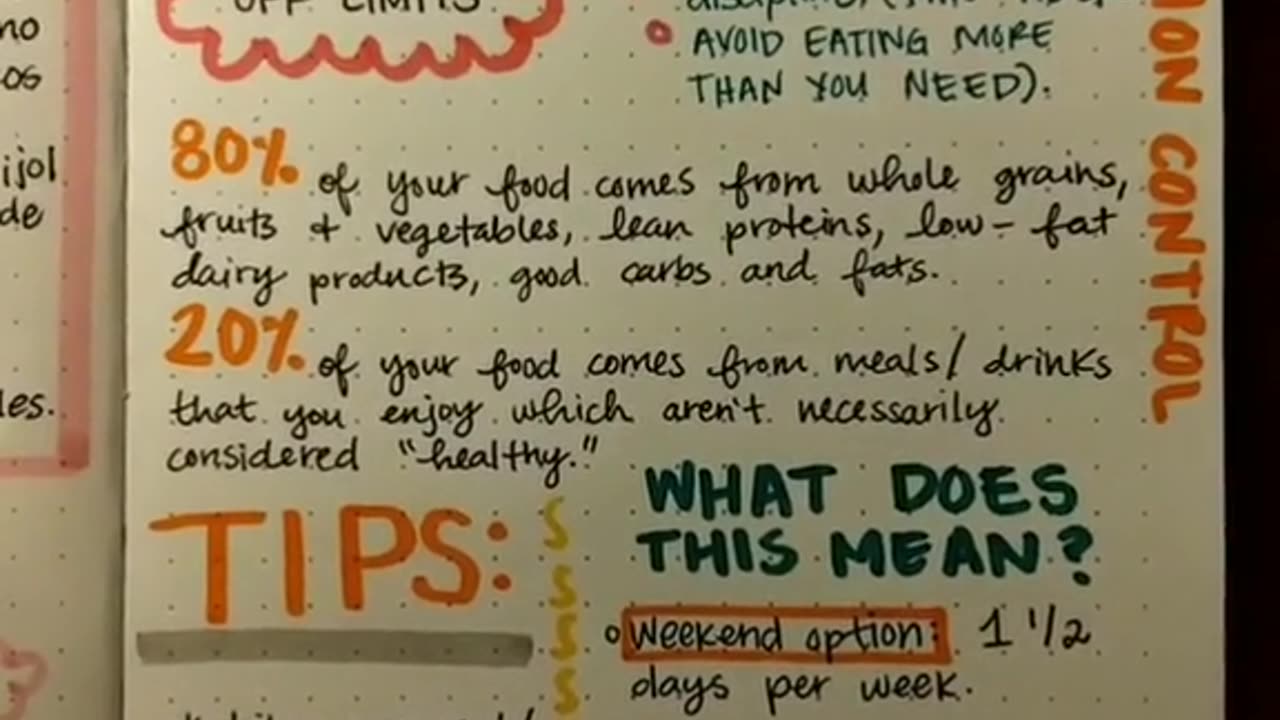 no
os
ijol
de
les.
OFF LIMITS
AVOID EATING MORE
THAN YOU NEED).
80% of your food comes from whole grains,
fruits + vegetables, lean proteins, low-fat
dairy products, good carbs and fats.
20% of your food comes from meals/drinks
that you enjoy which aren't necessarily
considered "healthy."
TIPS:
WHAT DOES
THIS MEAN?
Weekend option: 1 1/2
days per week.
ION CONTROL